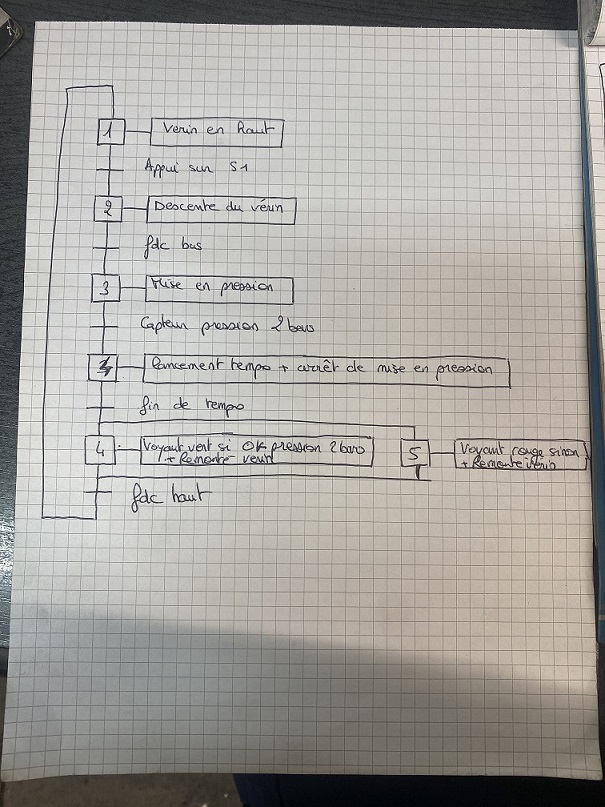 1 Verin en haut
Appui sur S1
2 Descente du vérin
fdc bas
3 Mise en pression
Capteur pression 2 bars
Lancement tempo + arrêt de mise en pression
fin de tempo
4 Voyant vert si OK pression 2 bars
+ Remonte verin
5 Voyant rouge sinon
+ Remonte verin
fdc haut